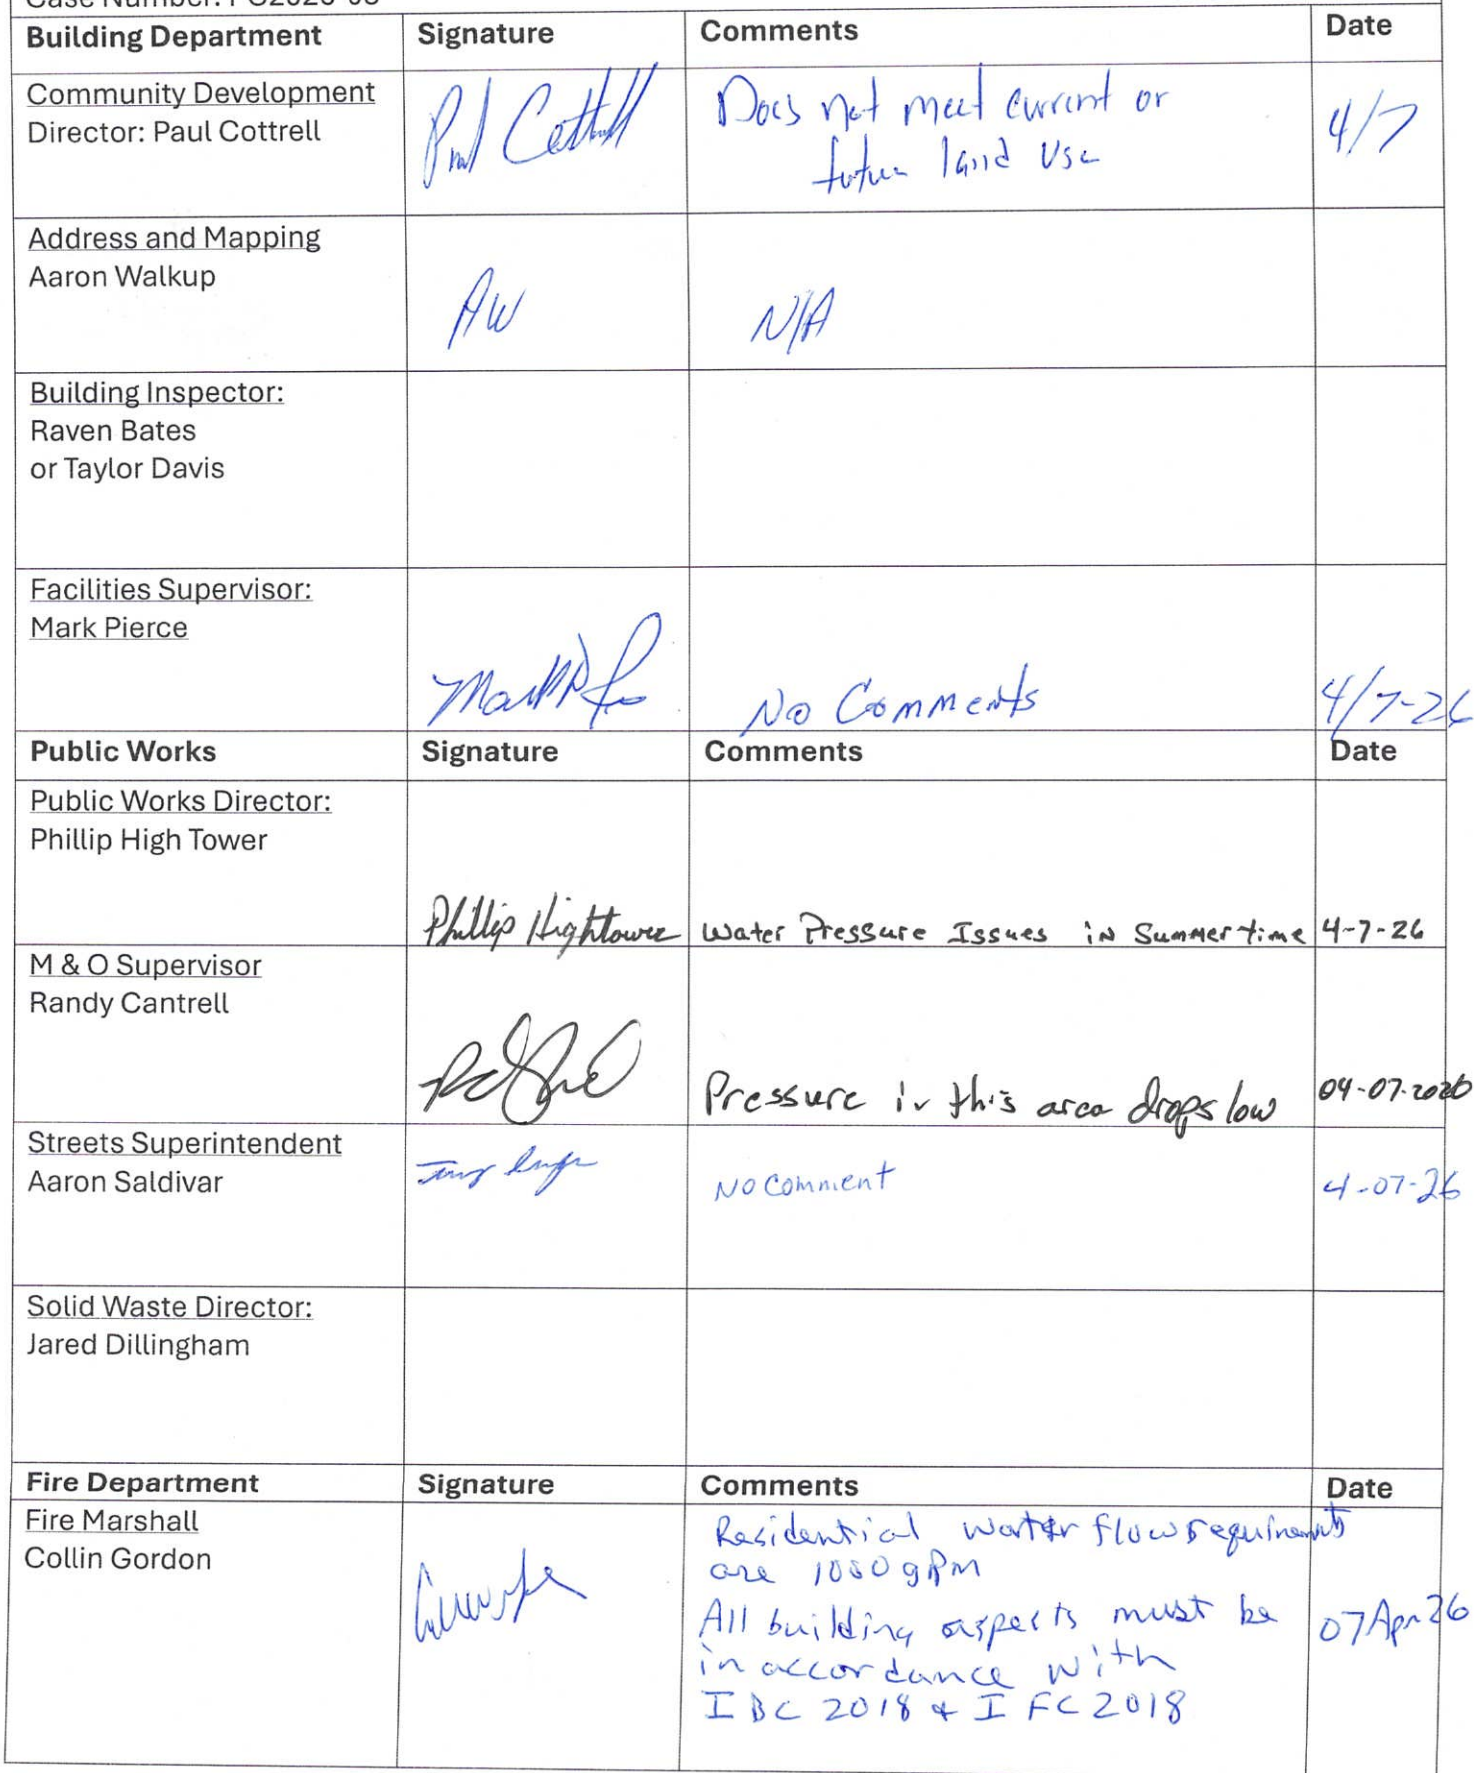 Building Department Signature Comments Date
Community Development
Director: Paul Cottrell
Paul Cottrell
Does not meet current or
future land use
4/7
Address and Mapping
Aaron Walkup
AW
N/A
Building Inspector:
Raven Bates
or Taylor Davis
Facilities Supervisor:
Mark Pierce
No Comments
4/7-26
Public Works Signature Comments Date
Public Works Director:
Phillip High Tower
Phillip Hightower
Water Pressure Issues in Summer time
4-7-26
M & O Supervisor
Randy Cantrell
Pressure in this area drops low
04-07-2026
Streets Superintendent
Aaron Saldivar
No comment
4-07-26
Solid Waste Director:
Jared Dillingham
Fire Department Signature Comments Date
Fire Marshall
Collin Gordon
Residential water flow requirements
are 1000 gpm
All building aspects must be
in accordance with
IBC 2018 & IFC 2018
07 Apr 26